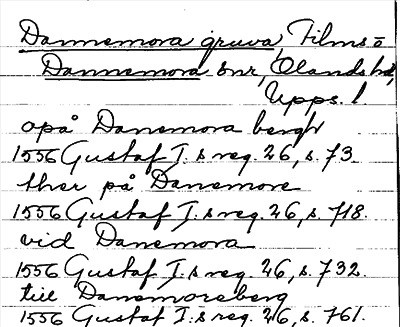 Dannemora gruva, Films o
Dannemora snr, Olands hd,
Upps. l.
opå Danemora bergh
1556 Gustaf I:s reg. 26, s. 73.
ther på Danemore
1556 Gustaf I:s reg. 26, s. 718.
vid Danemora
1556 Gustaf I:s reg. 26, s. 732.
till Danemoreberg
1556 Gustaf I:s reg. 26, s. 761.